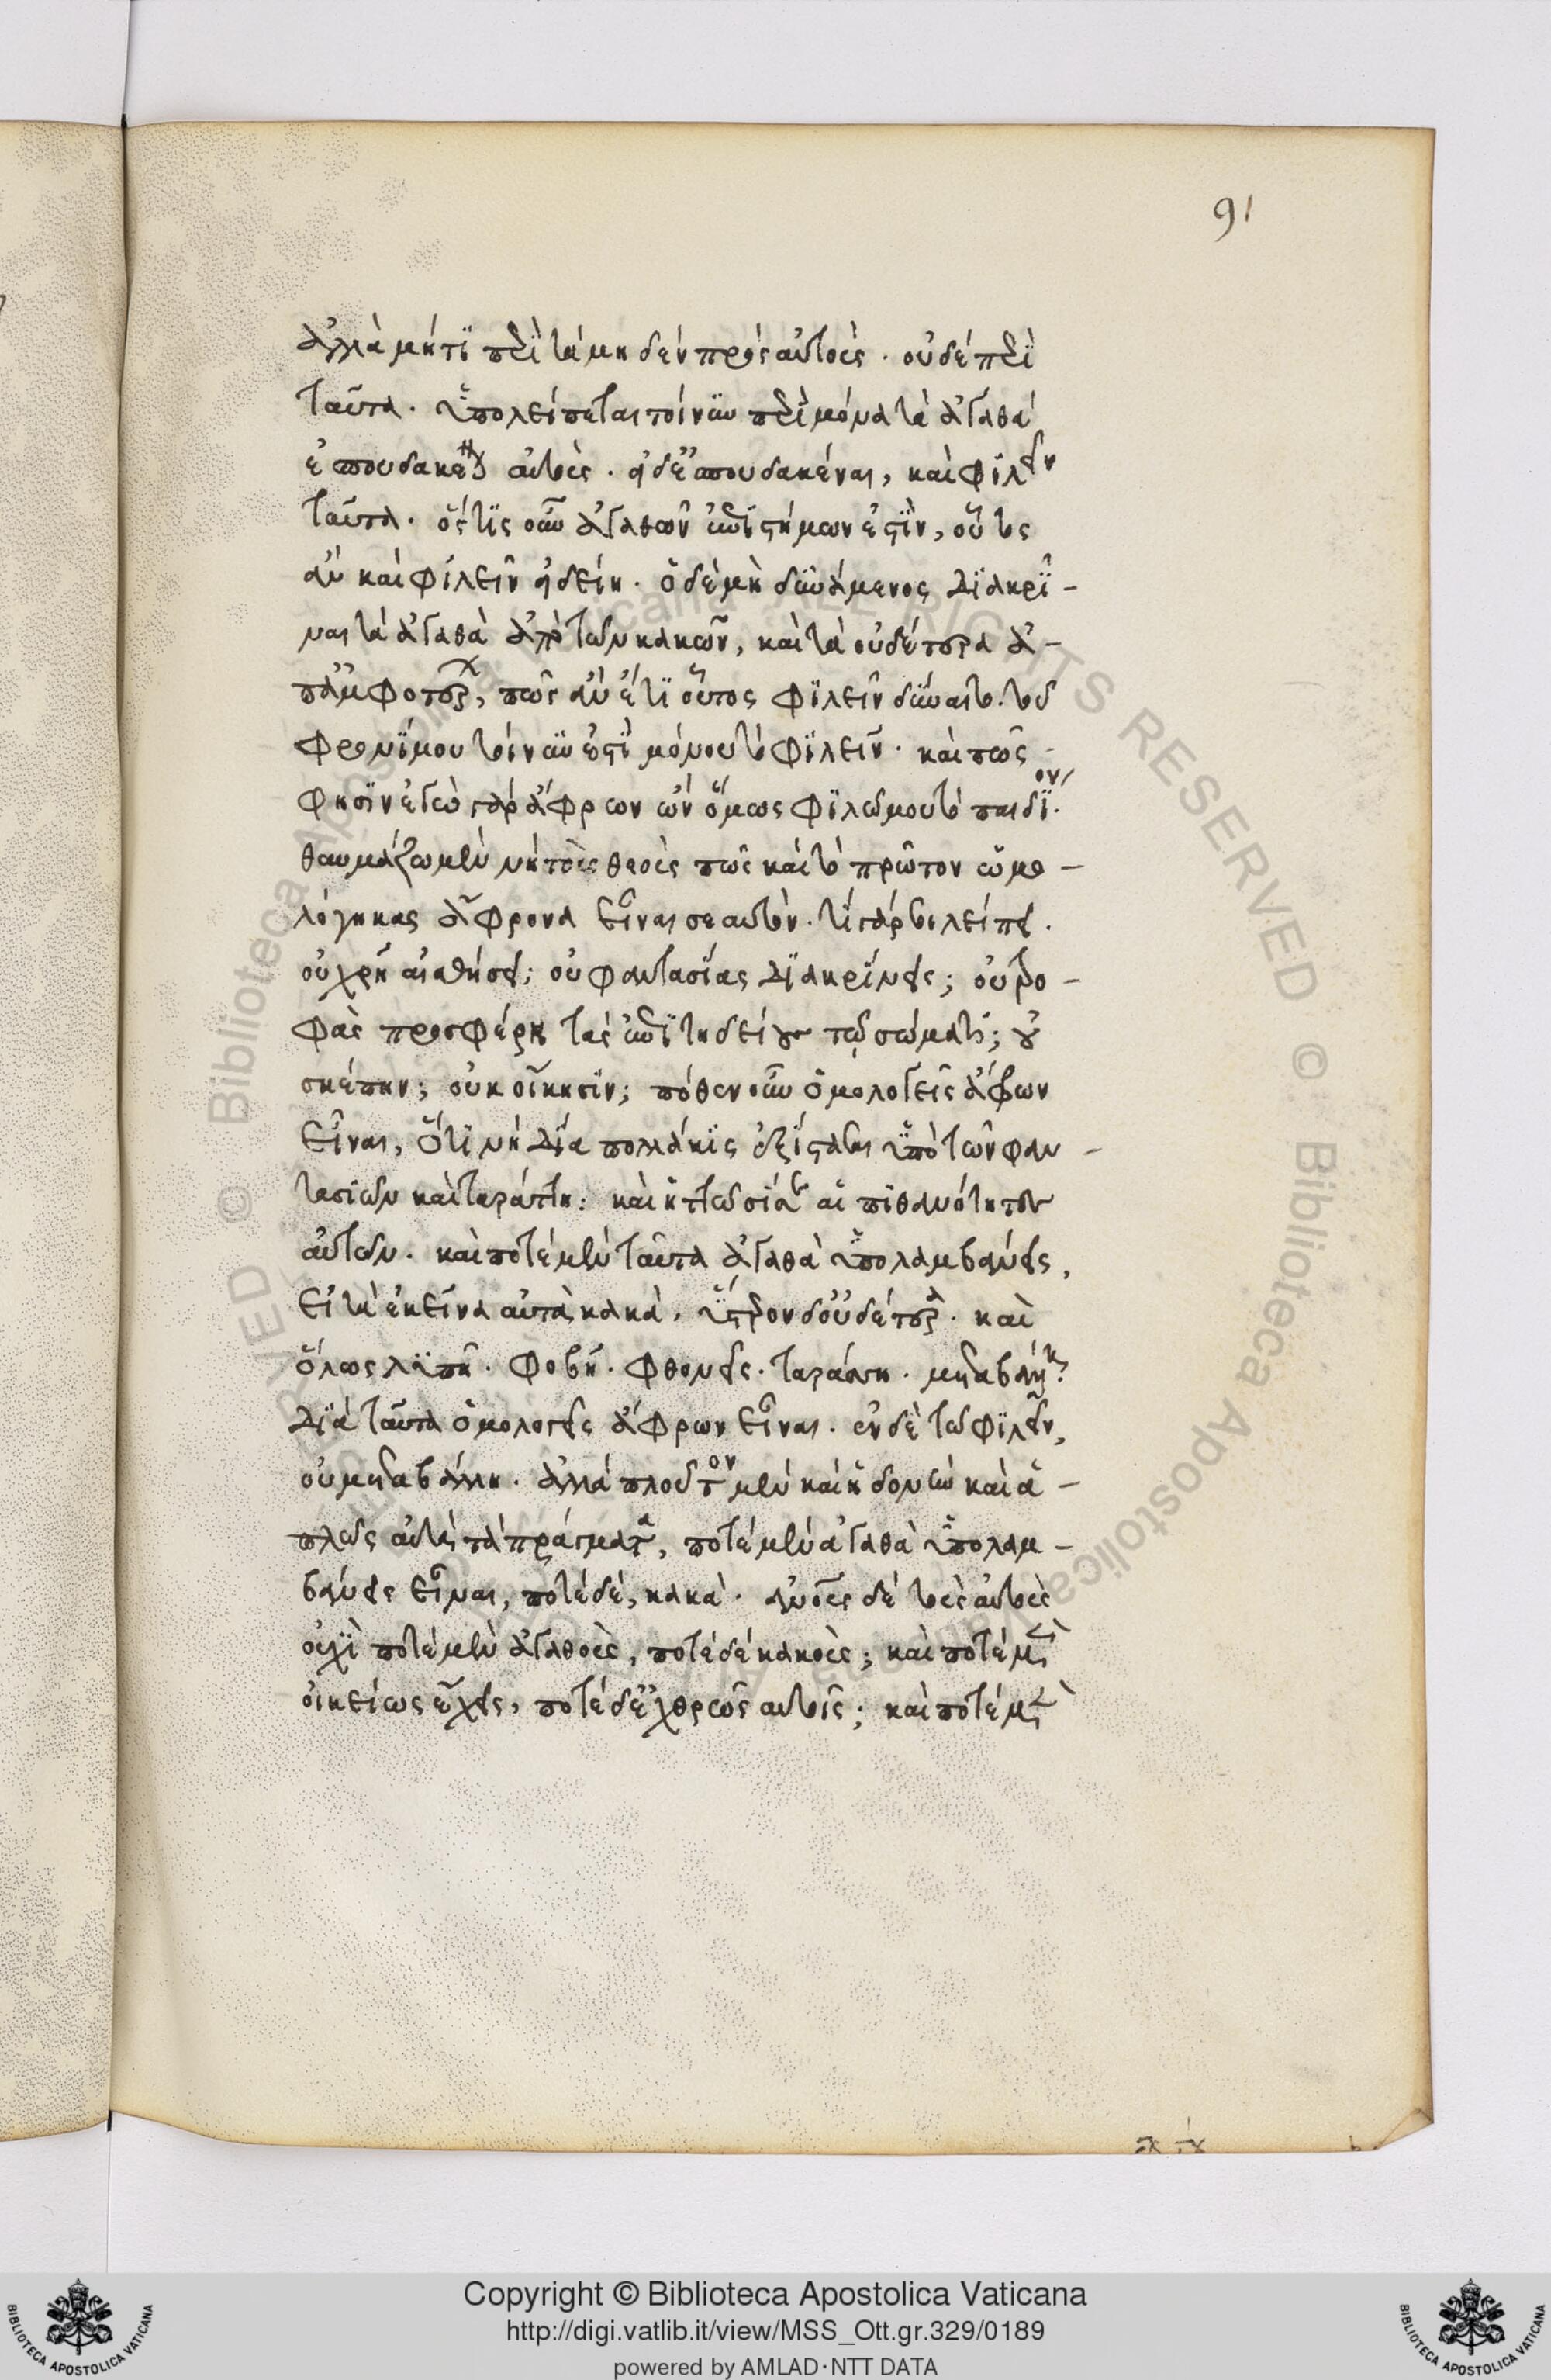 91
ἀλλὰ μήτι περὶ τὰ μηδὲν πρὸς αὐτούς. οὐδὲ περὶ
ταῦτα. ὑπολείπεται τοίνυν περὶ μόνα τὰ ἀγαθὰ
ἐσπουδακέναι αὐτούς. εἰ δ' ἐσπουδακέναι, καὶ φιλεῖν
ταῦτα. ὅστις οὖν ἀγαθῶν ἐπιστήμων ἐστὶν, οὗτος
ἂν καὶ φιλεῖν εἰδείη. ὁ δὲ μὴ δυνάμενος διακρῖ-
ναι τὰ ἀγαθὰ ἀπὸ τῶν κακῶν, καὶ τὰ οὐδέτερα ἀ-
π' ἀμφοτέρων, πῶς ἂν ἔτι οὗτος φιλεῖν δύναιτο. τοῦ
φρονίμου τοίνυν ἐστὶ μόνου τὸ φιλεῖν. καὶ πῶς
φησὶν ἐγὼ γὰρ ἄφρων ὢν ὅμως φιλῶ μου τὸ παιδίον.
θαυμάζω μὲν νὴ τοὺς θεοὺς πῶς καὶ τὸ πρῶτον ὡμο-
λόγηκας ἄφρονα εἶναι σεαυτόν. τί γάρ σοι λείπει.
οὐ χρῇ αἰσθήσει; οὐ φαντασίας διακρίνεις; οὐ τρο-
φὰς προσφέρῃ τὰς ἐπιτηδείους τῷ σώματι; οὐ
σκέπην; οὐκ οἴκησιν; πόθεν οὖν ὁμολογεῖς ἄφρων
εἶναι, ὅτι νὴ Δία πολλάκις ἐξίστασαι ὑπὸ τῶν φαν-
τασιῶν καὶ ταράττῃ. καὶ ἡττῶσί σε αἱ πιθανότητες
αὐτῶν. καὶ ποτὲ μὲν ταῦτα ἀγαθὰ ὑπολαμβάνεις,
εἶτα ἐκεῖνα αὐτὰ κακὰ. ὕστερον δ' οὐδέτερα. καὶ
ὅλως λυπῇ. φοβῇ. φθονεῖς. ταράσσῃ. μεταβάλλῃ.
διὰ ταῦτα ὁμολογεῖς ἄφρων εἶναι. ἐν δὲ τῷ φιλεῖν,
οὐ μεταβάλλῃ. ἀλλὰ πλοῦτον μὲν καὶ ἡδονὴν καὶ ἁ-
πλῶς αὐτὰ τὰ πράγματα, ποτὲ μὲν ἀγαθὰ ὑπολαμ-
βάνεις εἶναι, ποτὲ δὲ, κακὰ. ἀνθρώπους δὲ τοὺς αὐτοὺς
οὐχὶ ποτὲ μὲν ἀγαθοὺς, ποτὲ δὲ κακοὺς; καὶ ποτὲ μὲν
οἰκείως ἔχεις, ποτὲ δὲ ἐχθρῶς αὐτοῖς; καὶ ποτὲ μὲν
Copyright © Biblioteca Apostolica Vaticana
http://digi.vatlib.it/view/MSS_Ott.gr.329/0189
powered by AMLAD·NTT DATA